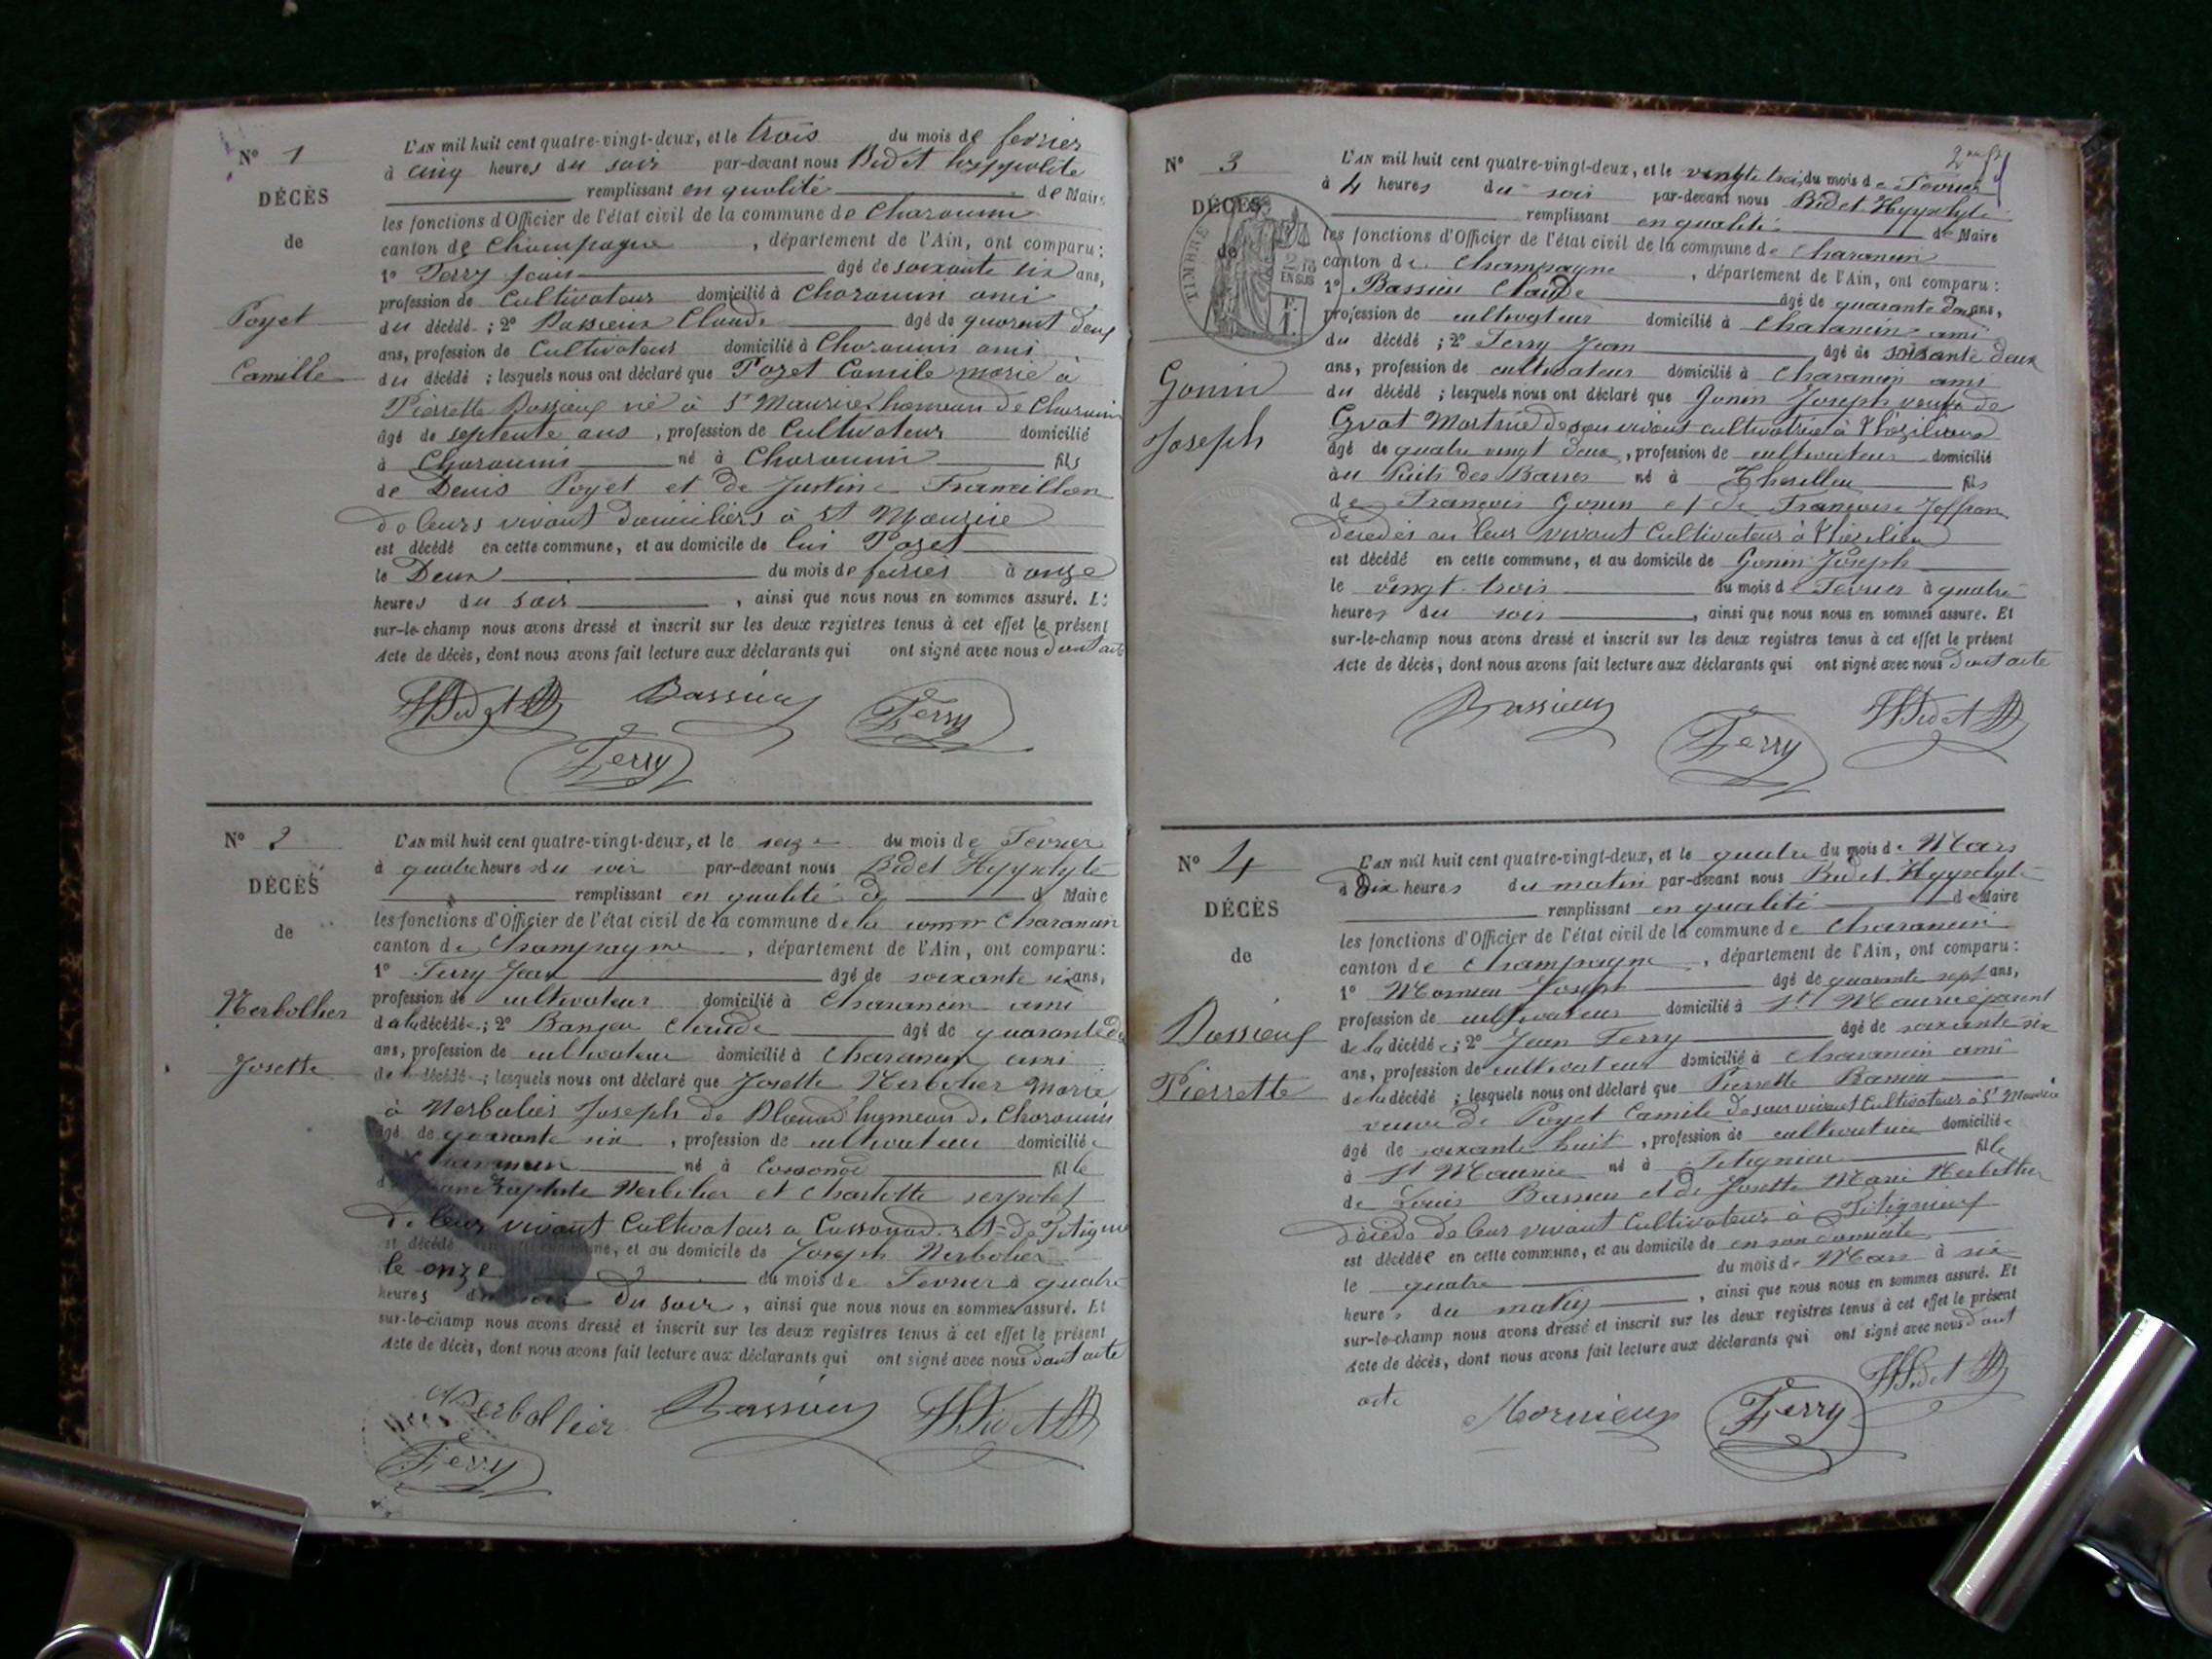 N° 1
DÉCÈS
de
Poyet
Camille
L'AN mil huit cent quatre-vingt-deux, et le trois du mois de fevrier
à cinq heures du soir par-devant nous Bidet hyppolite
remplissant en qualité de Maire
les fonctions d'Officier de l'état civil de la commune de Charancin
canton de Champagne, département de l'Ain, ont comparu :
1° Ferry Jean âgé de soixante six ans,
profession de Cultivateur domicilié à Charancin ami
du décédé ; 2° Bassieux Claude âgé de quarant deux
ans, profession de Cultivateur domicilié à Charancin ami
du décédé ; lesquels nous ont déclaré que Poyet Camile marié à
Pierrette Bassieux né à St Maurice hameau de Charancin
âgé de septente ans, profession de Cultivateur domicilié
à Charancin né à Charancin fils
de Denis Poyet et de Justine Framillon
de leurs vivant domiciliers à St Maurice
est décédé en cette commune, et au domicile de lui Poyet
le Deux du mois de fevrier à onze
heures du soir, ainsi que nous nous en sommes assuré. Et
sur-le-champ nous avons dressé et inscrit sur les deux registres tenus à cet effet le présent
Acte de décès, dont nous avons fait lecture aux déclarants qui ont signé avec nous dont acte
HBidet Bassieux Ferry
Ferry
N° 2
DÉCÈS
de
Nerbollier
Josette
L'AN mil huit cent quatre-vingt-deux, et le seize du mois de Fevrier
à quatre heures du soir par-devant nous Bidet Hyppolyte
remplissant en qualité de d Maire
les fonctions d'Officier de l'état civil de la commune de la comm Charancin
canton de Champagne, département de l'Ain, ont comparu :
1° Ferry Jean âgé de soixante six ans,
profession de cultivateur domicilié à Charancin ami
de la décédée ; 2° Bassieu Claude âgé de quarante d
ans, profession de cultivateur domicilié à Charancin ami
de la décédé ; lesquels nous ont déclaré que Josette Nerbolier Marié
à Nerbolier Joseph de hameau de Charancin
âgé de quarante six, profession de cultivateur domicilié
né à fille
Nerbolier et Charlotte
De leur vivant Cultivateurs a
est décédé commune, et au domicile de Joseph Nerbolier
le onze du mois de Fevrier à quatre
heures du soir, ainsi que nous nous en sommes assuré. Et
sur-le-champ nous avons dressé et inscrit sur les deux registres tenus à cet effet le présent
Acte de décès, dont nous avons fait lecture aux déclarants qui ont signé avec nous dont acte
Nerbollier Bassieux HBidet
Ferry
N° 3
DÉCÈS
de
TIMBRE
EN SUS
Gonin
Joseph
L'AN mil huit cent quatre-vingt-deux, et le vingt trois du mois de Fevrier
à 4 heures du soir par-devant nous Bidet Hyppolyte
remplissant en qualité de Maire
les fonctions d'Officier de l'état civil de la commune de Charancin
canton de Champagne, département de l'Ain, ont comparu :
1° Bassieu Claude âgé de quarante deux ans,
profession de cultivateur domicilié à Charancin ami
du décédé ; 2° Ferry Jean âgé de soixante deux
ans, profession de cultivateur domicilié à Charancin ami
du décédé ; lesquels nous ont déclaré que Gonin Joseph veuf de
de son vivant cultivatrice à
âgé de quatre vingt deux, profession de cultivateur domicilié
au Puits des Barres né à fils
de François Gonin et de Françoise
décédés en leur vivant Cultivateurs à
est décédé en cette commune, et au domicile de Gonin Joseph
le vingt trois du mois de Fevrier à quatre
heures du soir, ainsi que nous nous en sommes assuré. Et
sur-le-champ nous avons dressé et inscrit sur les deux registres tenus à cet effet le présent
Acte de décès, dont nous avons fait lecture aux déclarants qui ont signé avec nous dont acte
Bassieux Ferry HBidet
N° 4
DÉCÈS
de
Bassieux
Pierrette
L'AN mil huit cent quatre-vingt-deux, et le quatre du mois de Mars
à Dix heures du matin par-devant nous Bidet Hyppolyte
remplissant en qualité de Maire
les fonctions d'Officier de l'état civil de la commune de Charancin
canton de Champagne, département de l'Ain, ont comparu :
1° Mornieu Joseph âgé de quarante sept ans,
profession de cultivateur domicilié à St Maurice parent
de la décédée ; 2° Jean Ferry âgé de soixante six
ans, profession de cultivateur domicilié à Charancin ami
de la décédé ; lesquels nous ont déclaré que Pierrette Bassieu
veuve de Poyet Camile de son vivant Cultivateur à St Maurice
âgé de soixante huit, profession de cultivateur domicilié
à St Maurice né à Pitignieu fille
de Louis Bassieu et de Josette Marie Nerbollier
décédé de leur vivant Cultivateurs à Pitigneux
est décédée en cette commune, et au domicile de en son domicile
le quatre du mois de Mars à six
heures du matin, ainsi que nous nous en sommes assuré. Et
sur-le-champ nous avons dressé et inscrit sur les deux registres tenus à cet effet le présent
Acte de décès, dont nous avons fait lecture aux déclarants qui ont signé avec nous dont
acte Mornieux Ferry HBidet